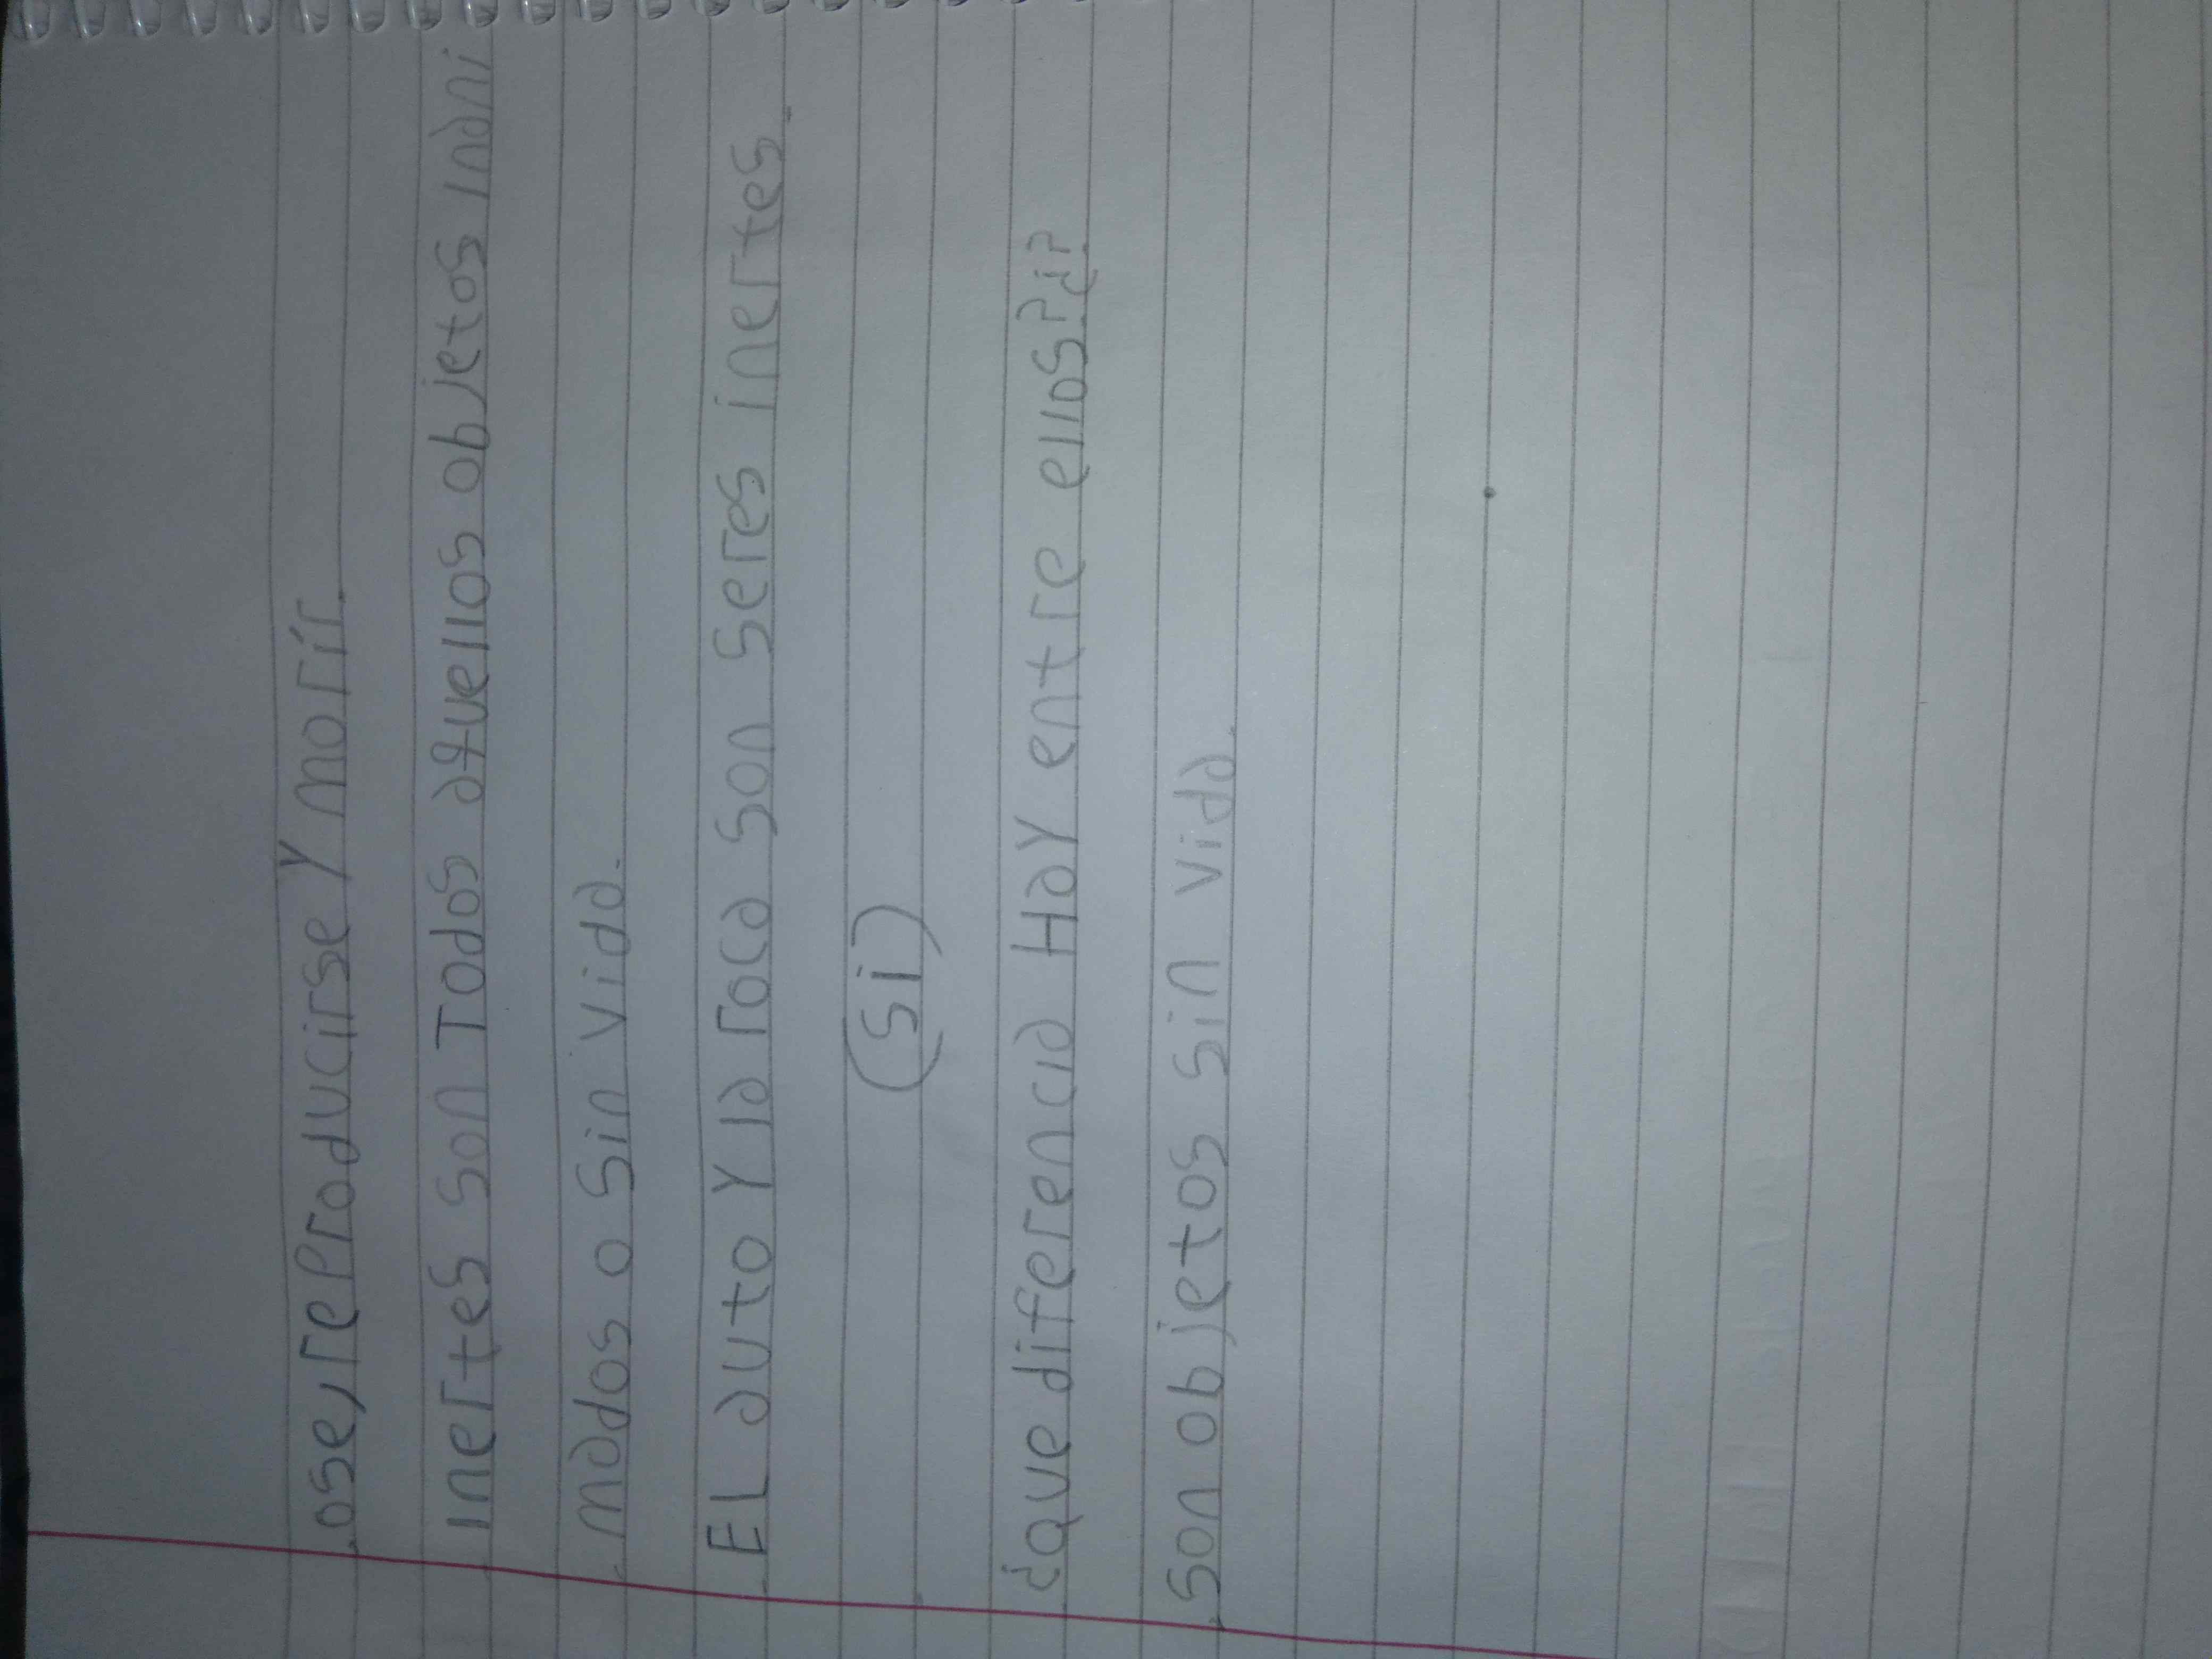 ose, reproducirse Y morír.
inertes son Todos aquellos objetos inani
mados o sin vida.
EL auto Y la roca son seres inertes.
(si)
¿que diferencia Hay entre ellos?¿i?
son objetos sin vida.